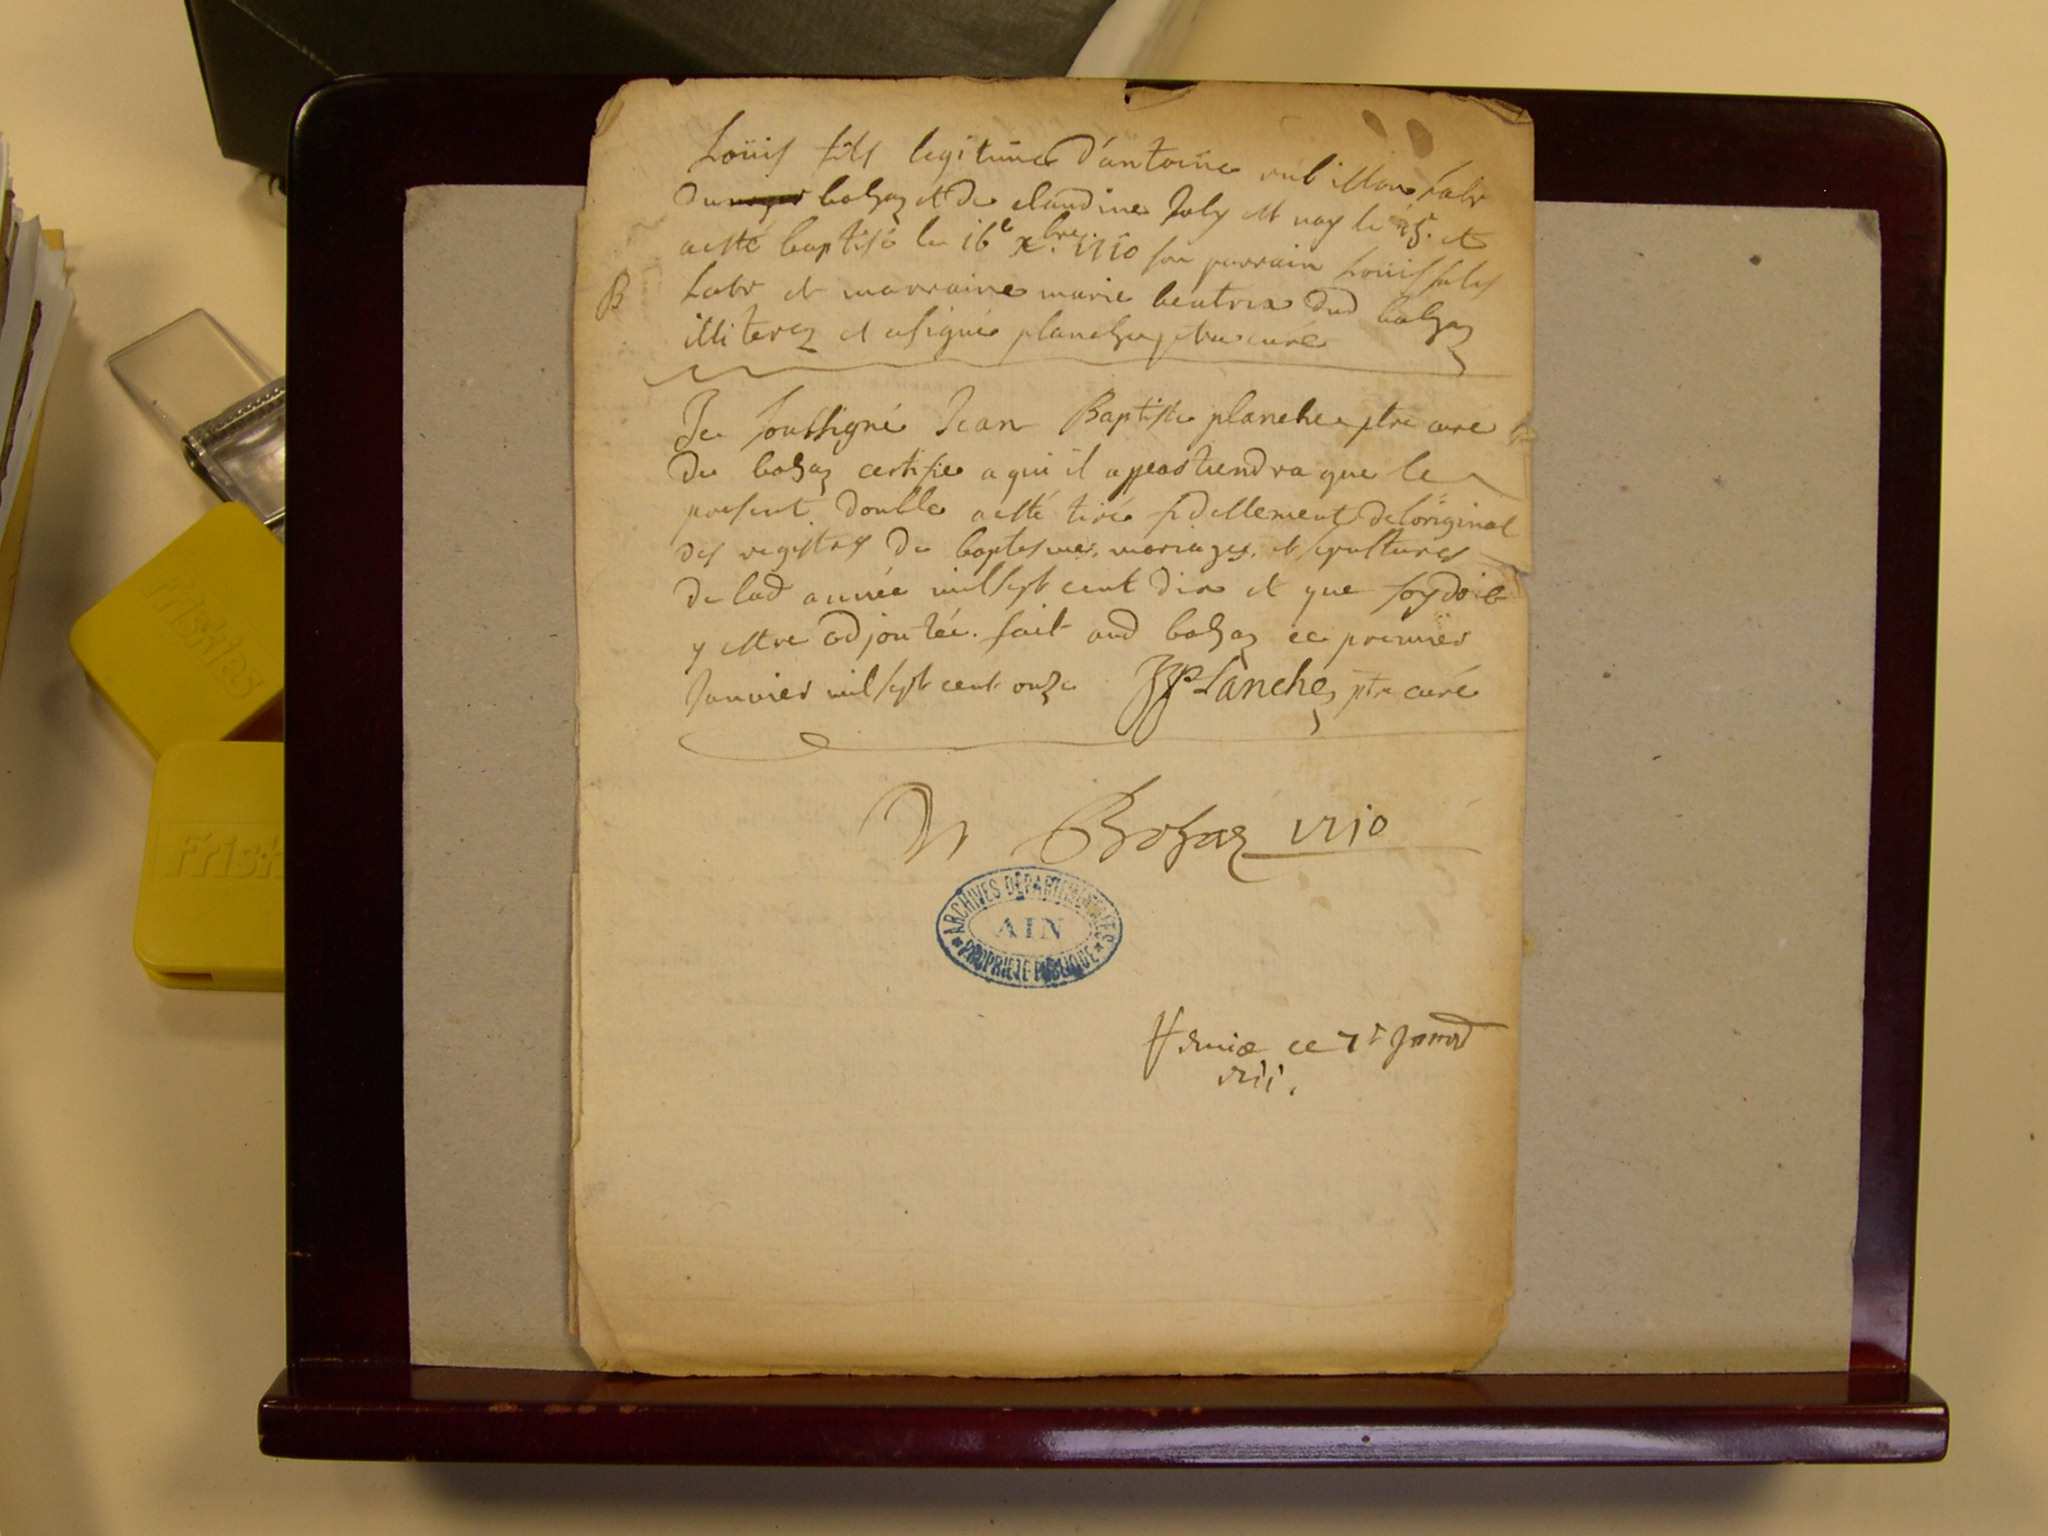 Louis fils legitime d'antoine rubillon labr
du bohaz et de claudine Joly est nay le 15. et
a esté baptisé le 16e xbre. 1710 son parrain Louis
labr et marraine marie beatrix dud bohaz
B
illiterez et a signé planche ptre curé
Je soussigné Jean Baptiste planche ptre curé
de bohaz certifie a qui il appartiendra que le
present double a esté tiré fidellement de loriginal
des registres de baptesmes, mariages, et sepultures
de lad année mil sept cent dix et que foy doit
y estre adjoutée. fait aud bohaz ce premier
Janvier mil sept cent onze JJPlanche ptre curé
Bohaz 1710
ARCHIVES DÉPARTEMENTALES
AIN
PROPRIÉTÉ PUBLIQUE
ce 7e
1711.
Friskies
Frisk